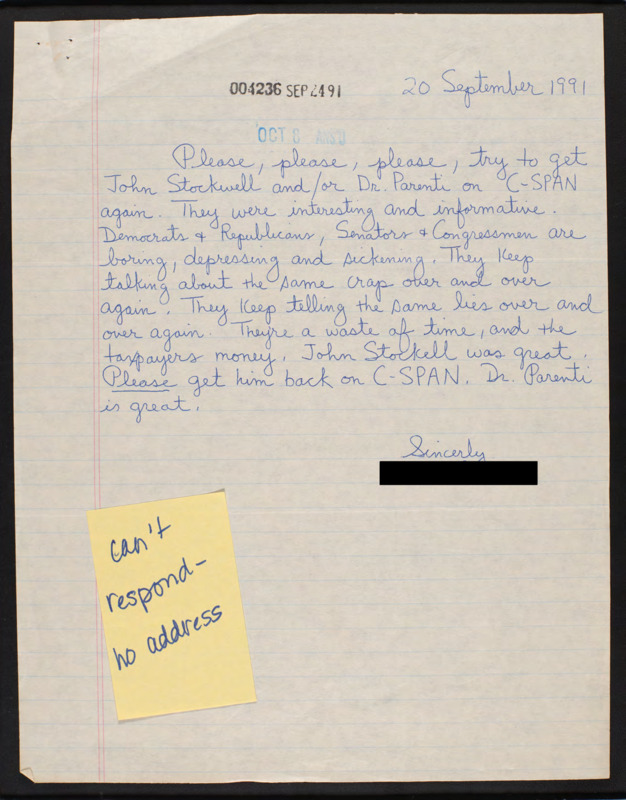 004236 SEP 24 91
20 September 1991
OCT 8 ANS'D
Please, please, please, try to get
John Stockwell and/or Dr. Parenti on C-SPAN
again. They were interesting and informative.
Democrats & Republicans, Senators & Congressmen are
boring, depressing and sickening. They keep
talking about the same crap over and over
again. They keep telling the same lies over and
over again. They're a waste of time, and the
taxpayers money. John Stockell was great.
Please get him back on C-SPAN. Dr. Parenti
is great.
Sincerly
can't
respond-
no address